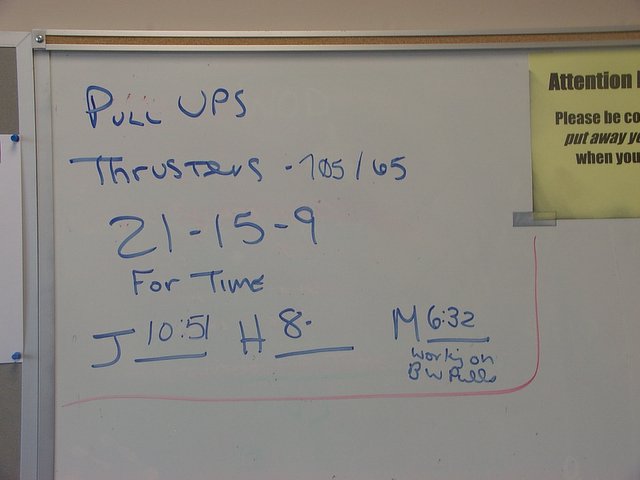 PULL UPS
THRUSTERS - 105/65
21-15-9
FOR TIME
J 10:51 H 8: M 6:32
Working on
BW Pulls
Attention
Please be
put away
when you